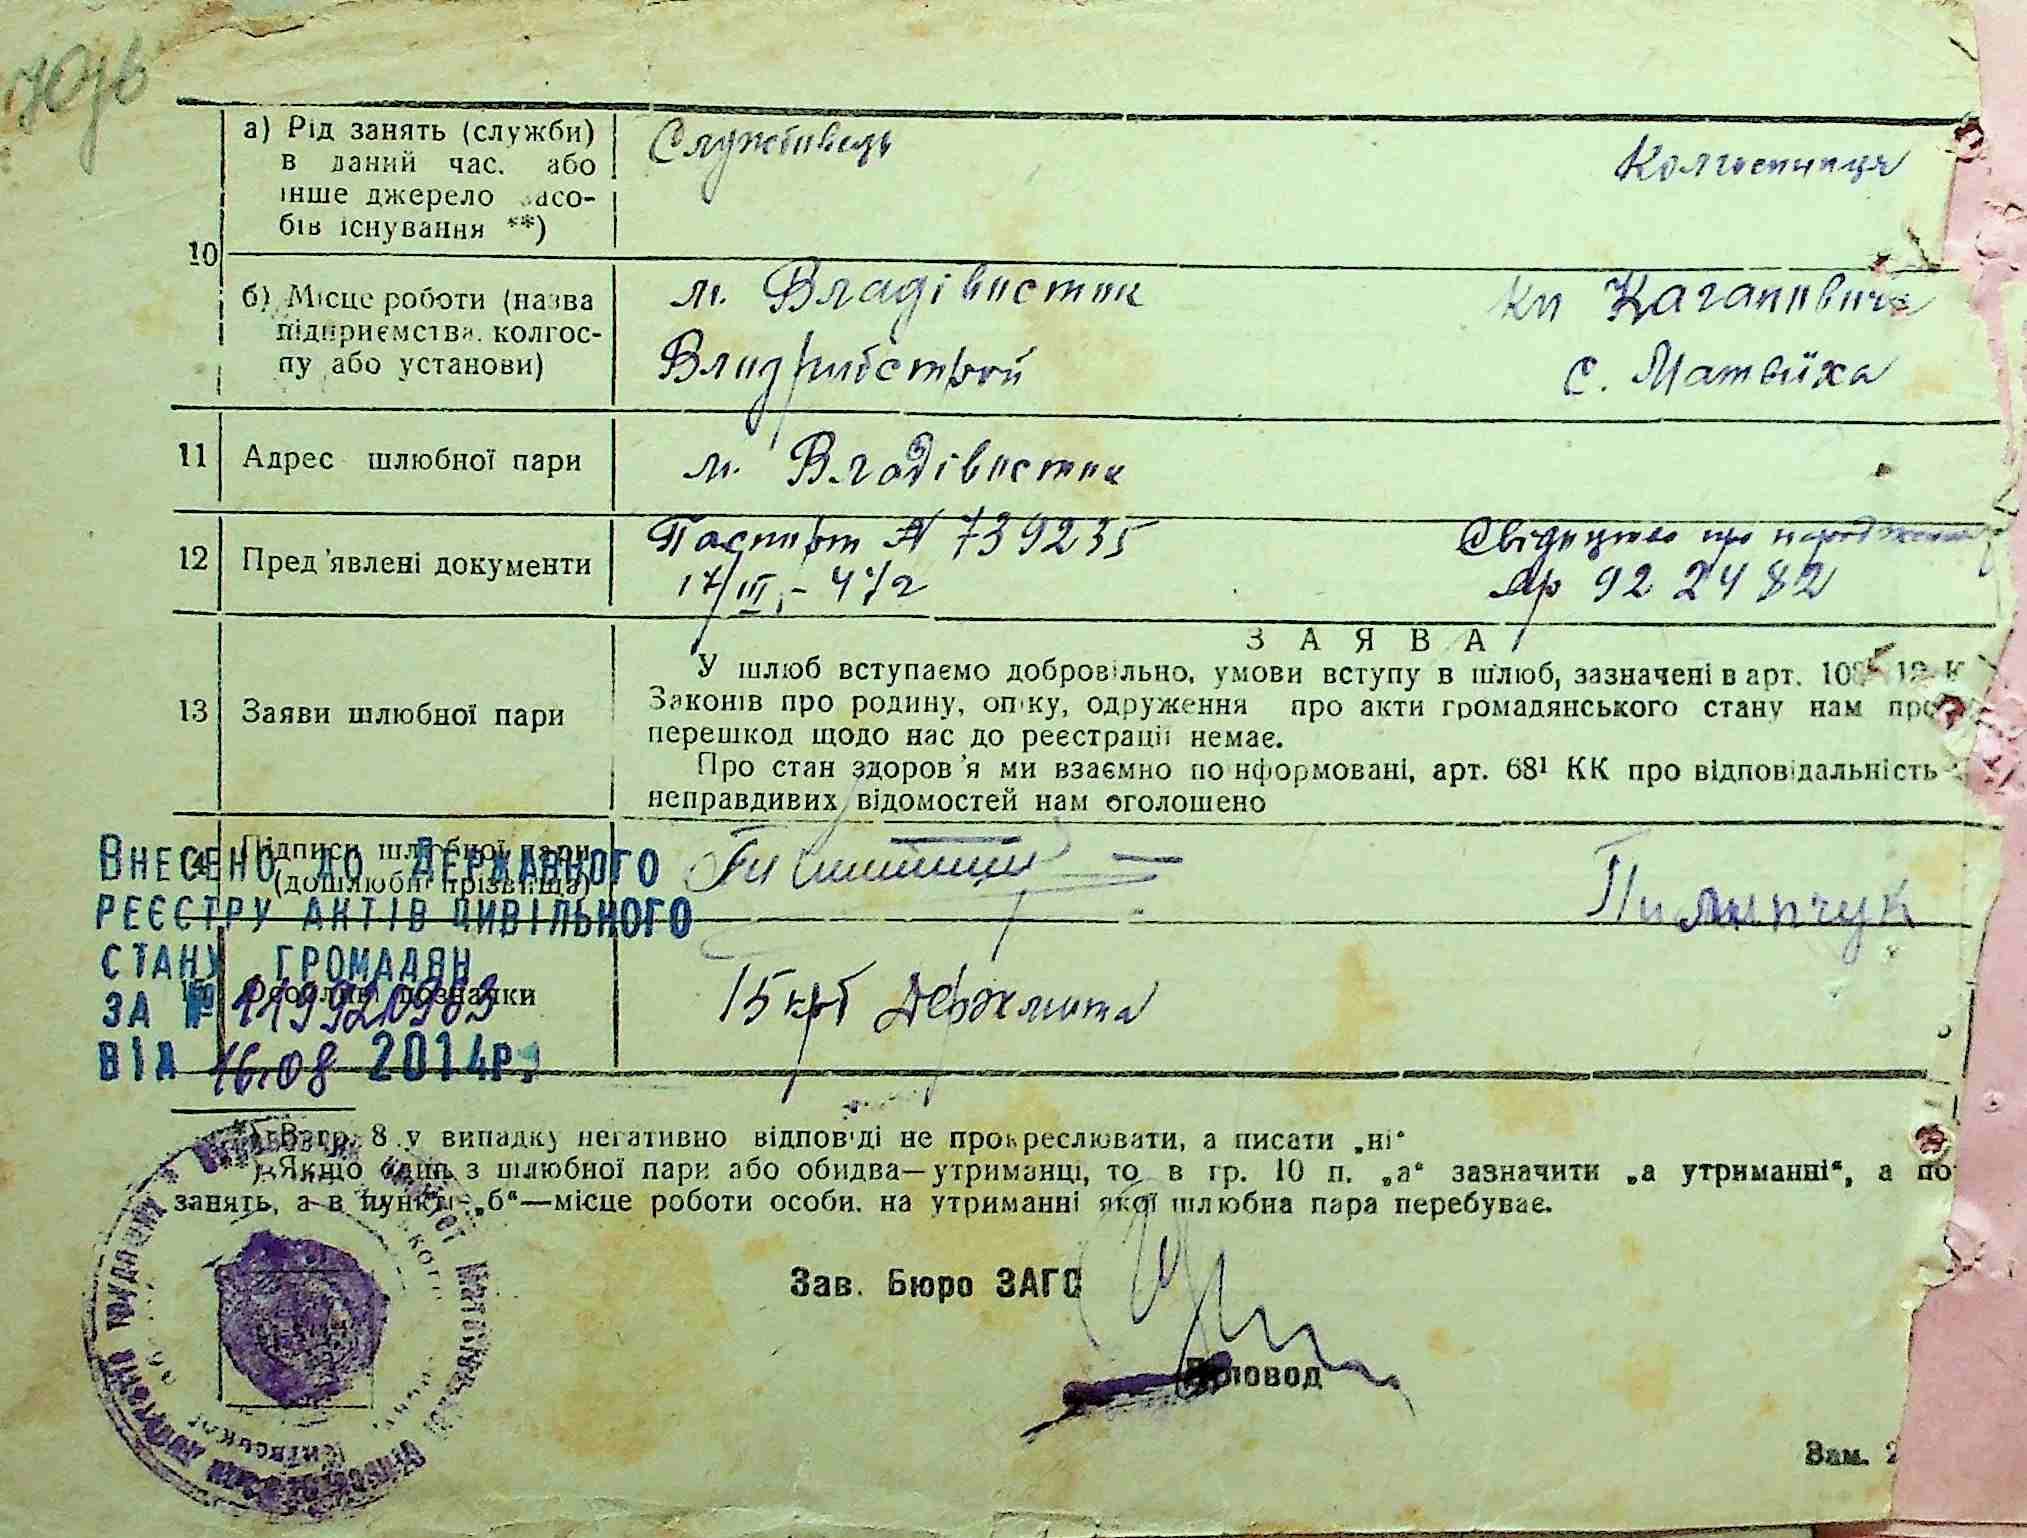 10
а) Рід занять (служби)
в даний час. або
інше джерело засо-
бів існування **)
Службовець
Колгоспниця
б) Місце роботи (назва
підприємства. колгос-
пу або установи)
м. Владівосток
кп Кагановича
с. Матвіїха
11 Адрес шлюбної пари
м. Владівосток
12 Пред'явлені документи
Паспорт № 739235
17/III - 47р
Свідоцтво про народження
№р 922482
13 Заяви шлюбної пари
ЗАЯВА
У шлюб вступаємо добровільно, умови вступу в шлюб, зазначені в арт.
Законів про родину, опіку, одруження про акти громадянського стану нам
перешкод щодо нас до реєстрації немає.
Про стан здоров'я ми взаємно поінформовані, арт. 68¹ КК про відповідальність
неправдивих відомостей нам оголошено
Підписи шлюбної пари
(дошлюбні прізвища)
Пилипчук
Особливі познаки
15 крб Держмита
Внесено до Державного
реєстру актів цивільного
стану громадян
за №
від 16.08 2014р.
*) В гр. 8 у випадку негативно відповіді не прокреслювати, а писати „ні“
Якщо один з шлюбної пари або обидва—утриманці, то в гр. 10 п. „а“ зазначити „а утриманні“, а по
занять, а в пункті „б“—місце роботи особи. на утриманні якої шлюбна пара перебуває.
Зав. Бюро ЗАГС
Діловод
Зам. 2